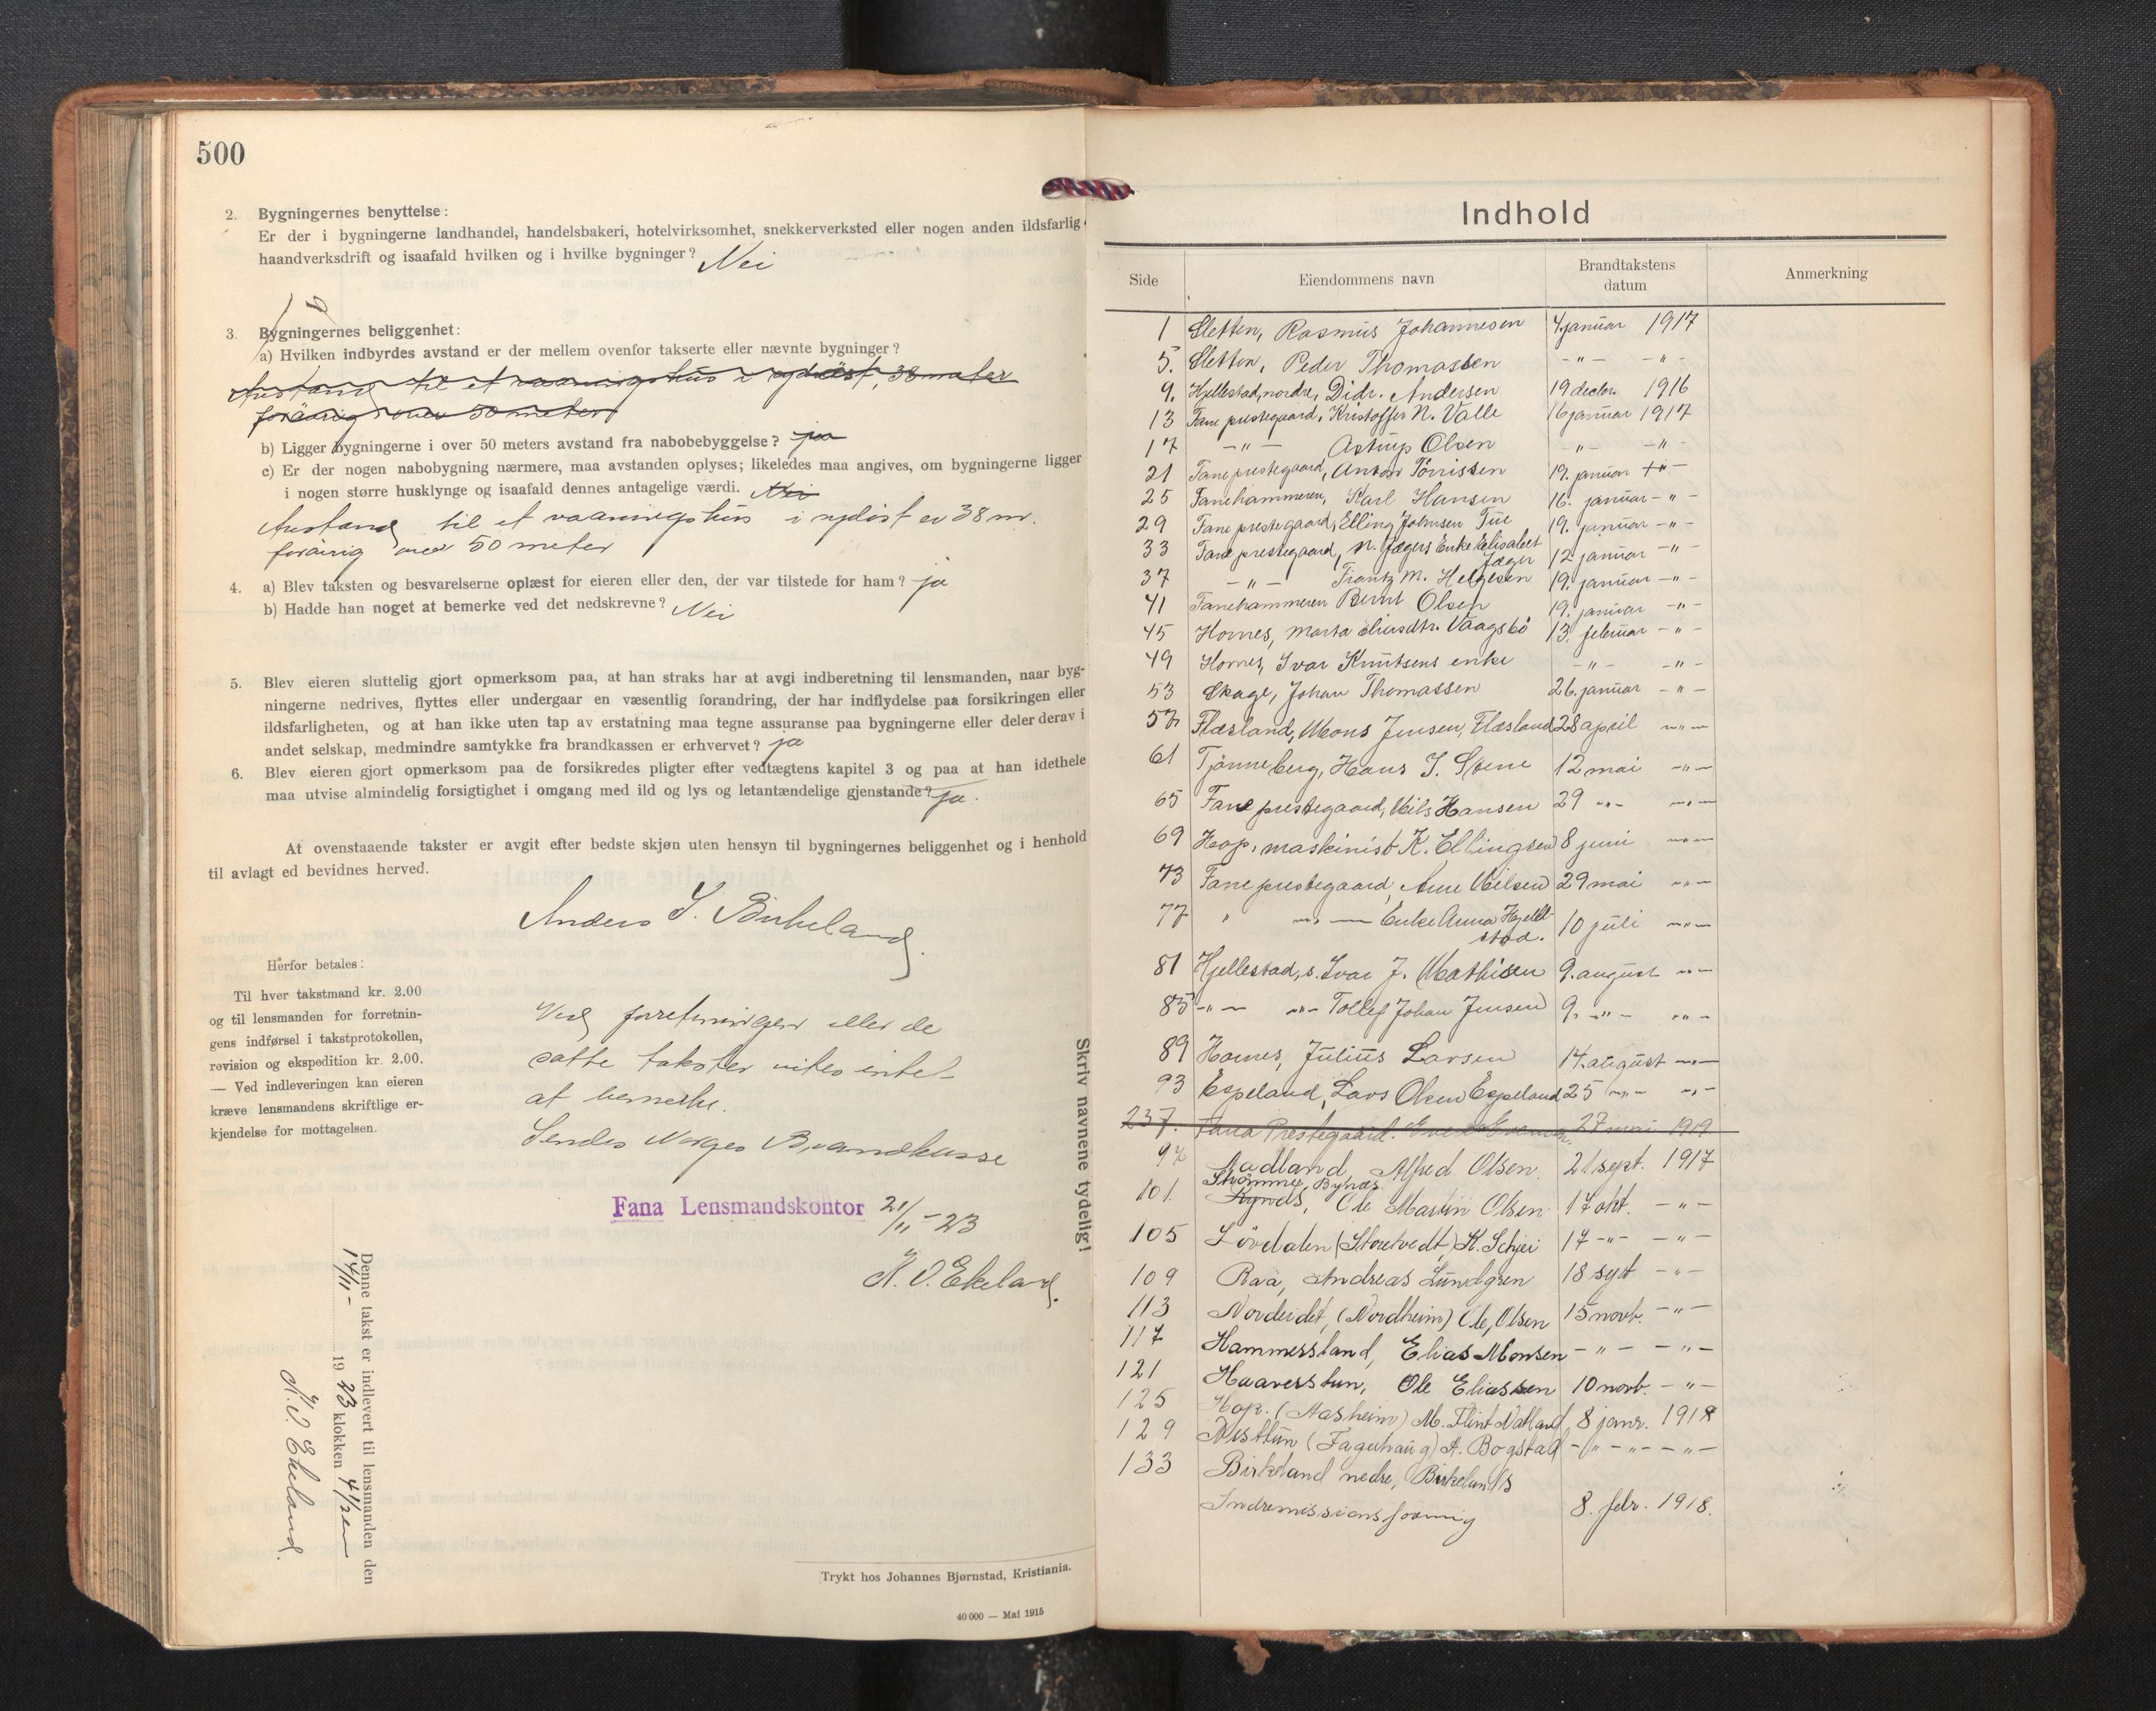 500
2. Bygningernes benyttelse:
Er der i bygningerne landhandel, handelsbakeri, hotelvirksomhet, snekkerverksted eller nogen anden ildsfarlig
haandverksdrift og isaafald hvilken og i hvilke bygninger? Nei
3. Bygningernes beliggenhet:
a) Hvilken indbyrdes avstand er der mellem ovenfor takserte eller nævnte bygninger?
Avstand til et vaaningshus i sydöst, 38 meter
forövrig over 50 meter
b) Ligger bygningerne i over 50 meters avstand fra nabobebyggelse? ja
c) Er der nogen nabobygning nærmere, maa avstanden oplyses; likeledes maa angives, om bygningerne ligger
i nogen større husklynge og isaafald dennes antagelige værdi. Nei
Avstand til et vaaningshus i sydöst er 38 m.
forövrig over 50 meter
4. a) Blev taksten og besvarelserne oplæst for eieren eller den, der var tilstede for ham? ja
b) Hadde han noget at bemerke ved det nedskrevne? Nei
5. Blev eieren sluttelig gjort opmerksom paa, at han straks har at avgi indberetning til lensmanden, naar byg-
ningerne nedrives, flyttes eller undergaar en væsentlig forandring, der har indflydelse paa forsikringen eller
ildsfarligheten, og at han ikke uten tap av erstatning maa tegne assuranse paa bygningerne eller deler derav i
andet selskap, medmindre samtykke fra brandkassen er erhvervet? ja
6. Blev eieren gjort opmerksom paa de forsikredes pligter efter vedtægtens kapitel 3 og paa at han idethele
maa utvise almindelig forsigtighet i omgang med ild og lys og letantændelige gjenstande? ja.
At ovenstaaende takster er avgit efter bedste skjøn uten hensyn til bygningernes beliggenhet og i henhold
til avlagt ed bevidnes herved.
Anders S. Birkeland.
Herfor betales:
Til hver takstmand kr. 2.00
og til lensmanden for forretnin-
gens indførsel i takstprotokollen,
revision og ekspedition kr. 2.00.
— Ved indleveringen kan eieren
kræve lensmandens skriftlige er-
kjendelse for mottagelsen.
Ved forretningen eller de
satte takster vites intet
at bemerke.
Sendes Norges Brandkasse
Fana Lensmandskontor 21/11 - 23
K. O. Ekeland.
Denne takst er indlevert til lensmanden den
14/11 - 1923 klokken 4 1/2 em
K. O. Ekeland.
Trykt hos Johannes Bjørnstad, Kristiania.
40 000 — Mai 1915
Skriv navnene tydelig!
Indhold
Side Eiendommens navn Brandtakstens datum Anmerkning
1 Sletten, Rasmus Johannesen 4 januar 1917
5. Sletten, Peder Thomassen -"- -"-
9. Hjellestad, nordre, Didr. Andersen 19 decbr. 1916
13 Fane prestegaard, Kristoffer N. Valle 16 januar 1917
17 -"- Astrup Olsen -"- -"-
21 Fane prestegaard, Anton Tönnissen 19. januar -"-
25 Fanehammeren, Karl Hansen 16. januar -"-
29 Fane prestegaard, Elling Johnsen Tue 19. januar -"-
33 Fane prestegaard, N. Jægers Enke Elisabet Jæger 12 januar -"-
37 -"- Frantz M. Helgesen 19. januar -"-
41 Fanehammeren Bernt Olsen 19. januar -"-
45 Hornes, Marta Eliasdtr. Vaagsbö 13. februar -"-
49 Hornes, Ivar Knutsens enke -"- -"-
53 Skage, Johan Thomassen 26. januar -"-
57 Flæsland, Mons Jensen Flæsland 28 april -"-
61 Tjönneberg, Hans S. Stene 12 mai -"-
65 Fane prestegaard, Nils Hansen 29 -"- -"-
69 Hop, maskinist K. Ellingsen 8 juni -"-
73 Fane prestegaard, Arne Nilsen 29 mai -"-
77 " -"- Enke Anna Hjelle-
stad. 10 juli -"-
81 Hjellestad, s. Ivar J. Mathisen 9. august -"-
85 -"- -"- Tollef Johan Jensen 9. -"- -"-
89 Hornes, Julius Larsen 14. august -"-
93 Espeland, Lars Olsen Espeland 25 -"- -"-
237. Fana Prestegaard. 27 mai 1919
97 Aadland, Alfred Olsen. 21 sept. 1917
Strömme, Bynæs
101. Ole Martin Olsen 17 okt. -"-
105 Lövdalen (Storetvedt) K. Schjei 17 -"- -"-
109 Raa, Andreas Lundgren 18 sept -"-
113 Nordeidet, (Nordheim) Ole Olsen 15 novb. -"-
117 Hammersland, Elias Monsen -"- -"-
121 Haaverstun, Ole Eliassen 10 novb. -"-
125 Hop. (Aasheim) M. Flint Natland, 8 janr. 1918
129 Nesttun (Fagerhaug) A. Bogstad -"- -"- -"-
133 Birkeland nedre, Birkelands
Indremissionsforening 8. febr. 1918.